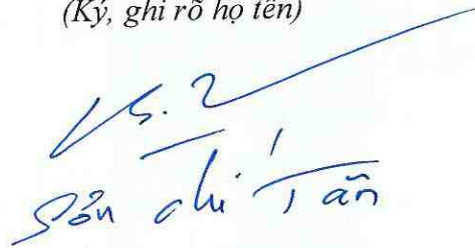 (Ký, ghi rõ họ tên)
Sơn Chí Tấn